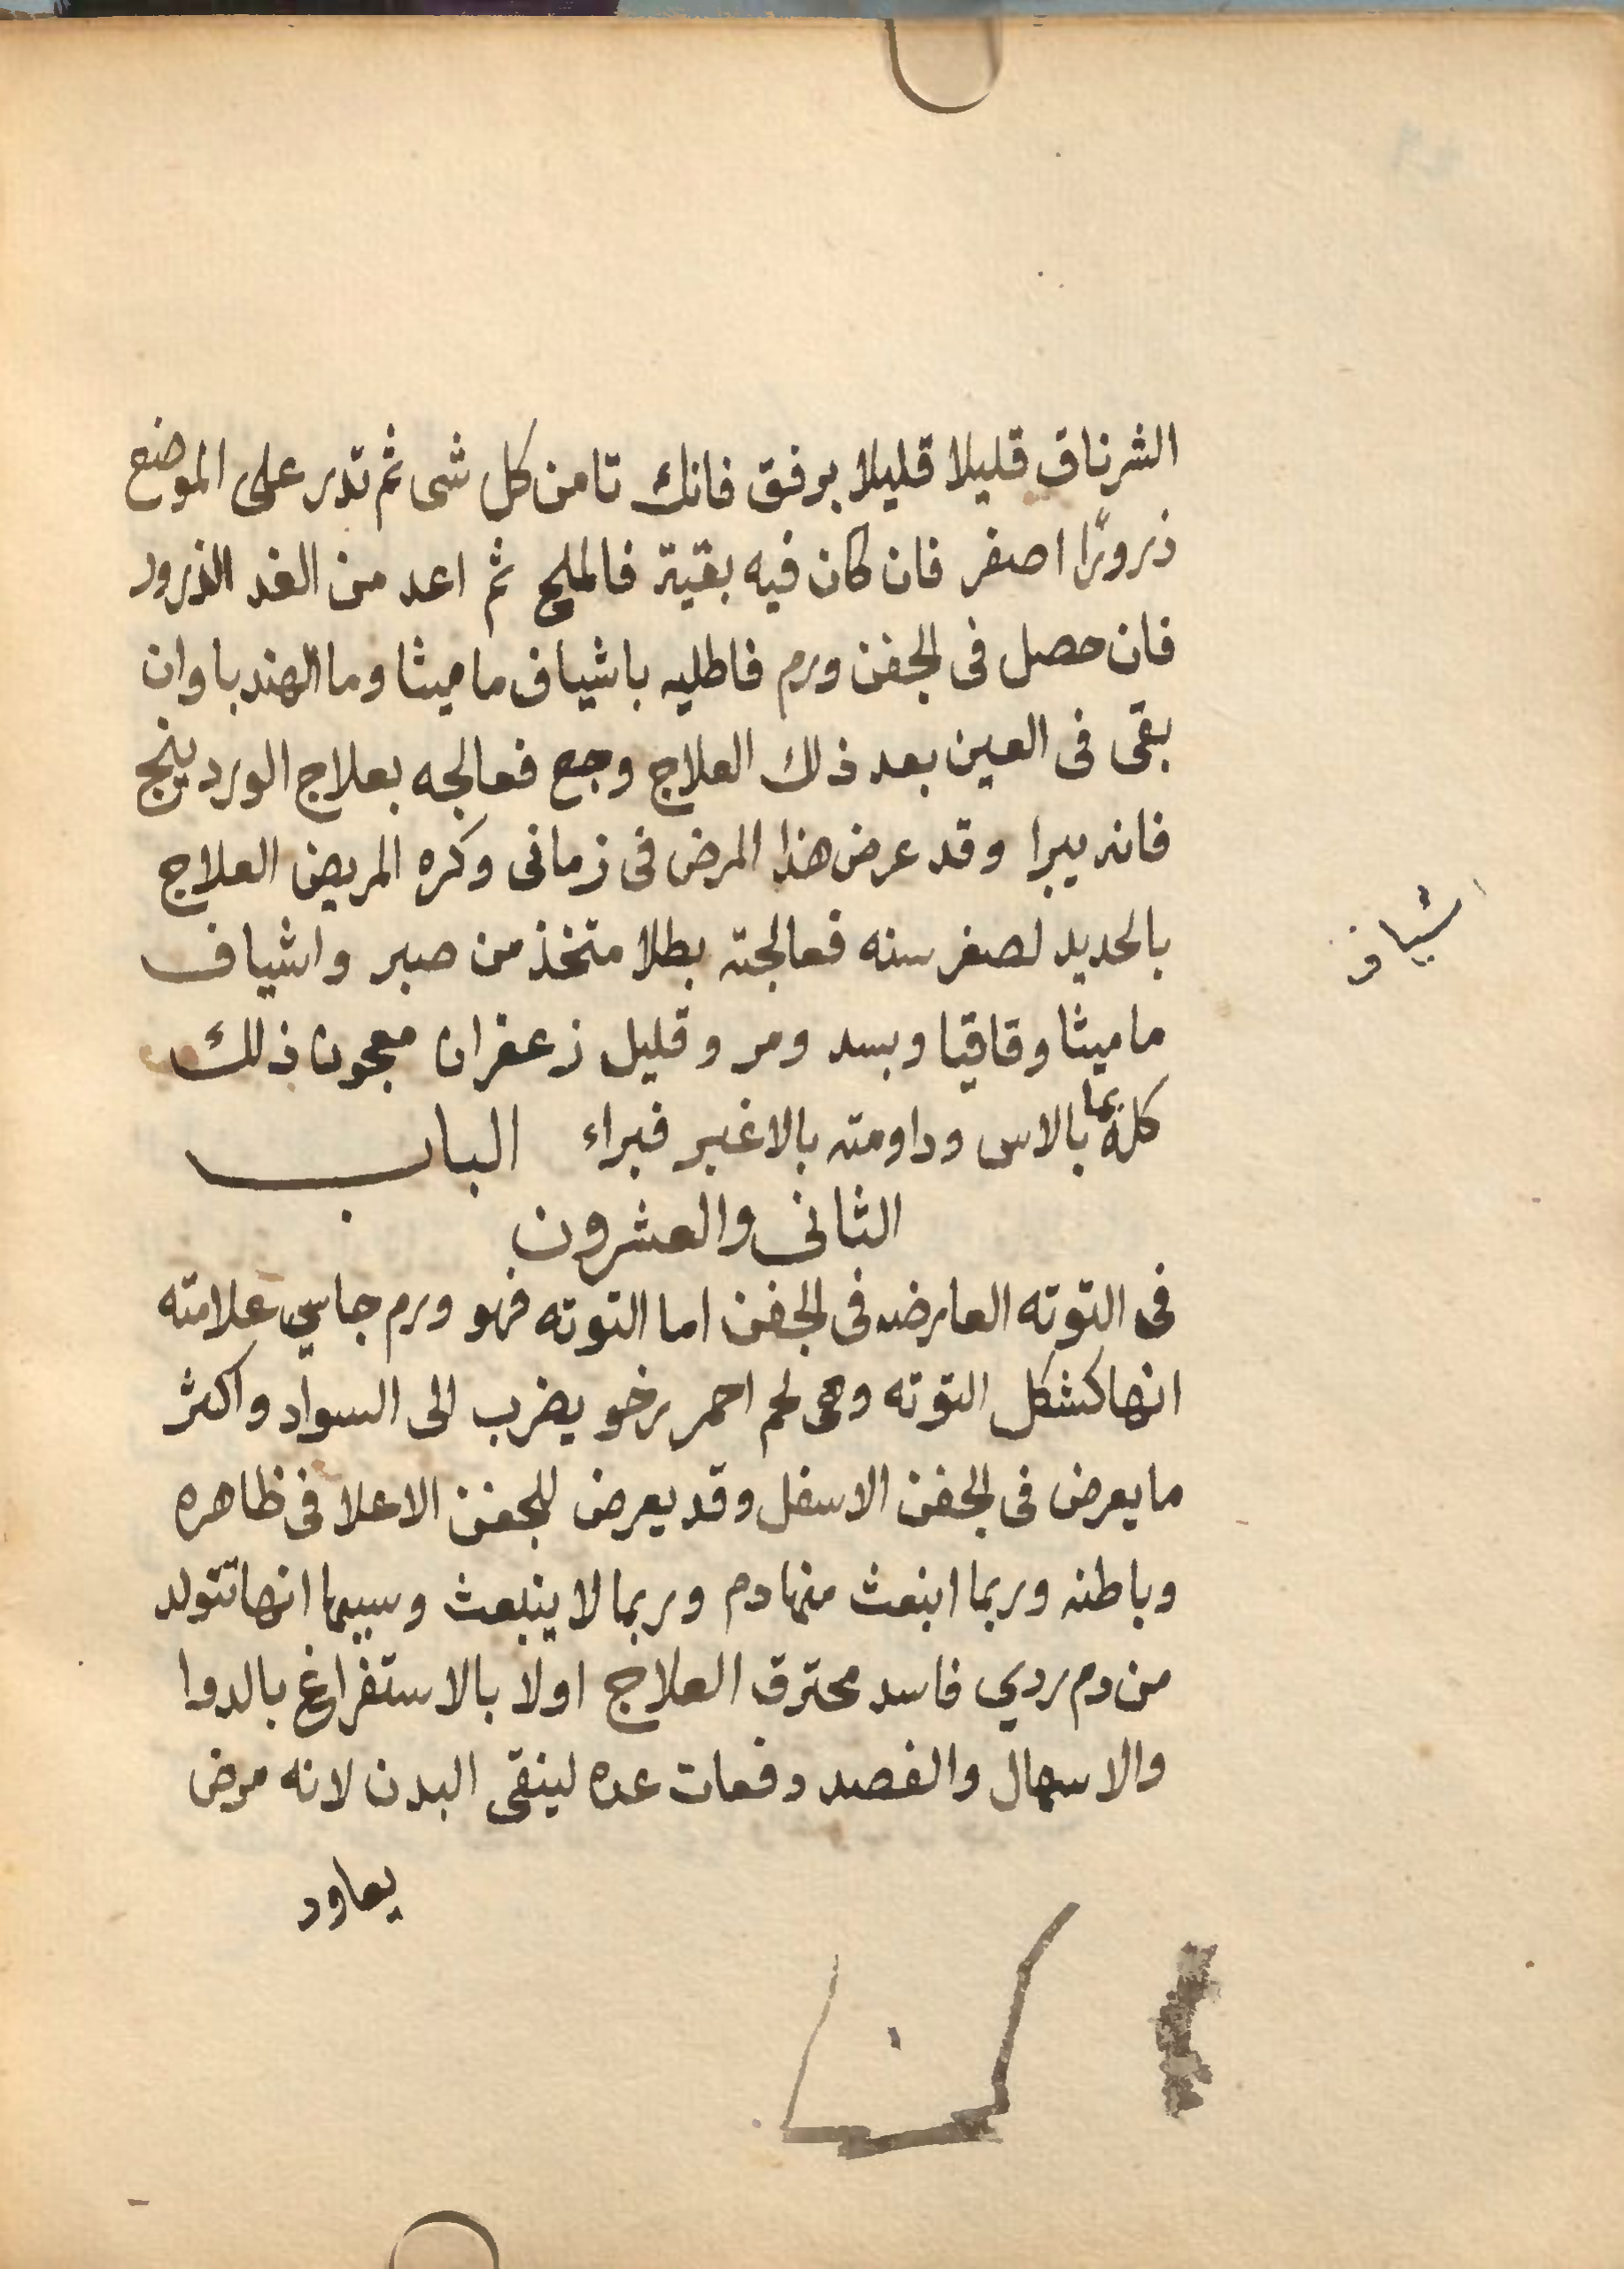 الشرناق قليلا قليلا برفق فانك تامن كل شى ثم تذر على الموضع
ذرورًا اصفر فان كان فيه بقية فالملح ثم اعد من الغد الذرور
فان حصل فى الجفن ورم فاطليه باشياف ماميثا وما الهندبا وان
بقى فى العين بعد ذلك العلاج وجع فعالجه بعلاج الوردينج
فانه يبرا وقد عرض هذا المرض فى زمانى وكره المريض العلاج
بالحديد لصغر سنه فعالجته بطلا متخذ من صبر واشياف
اشياف
ماميثا وقاقيا وبسد ومر وقليل زعفران معجون ذلك
كله بما بالاس وداومته بالاغبر فبراء الباب
الثانى والعشرون
فى التوته العارضه فى الجفن اما التوته فهو ورم جاسي علامته
انها كشكل التوته وهى لحم احمر رخو يضرب الى السواد واكثر
ما يعرض فى الجفن الاسفل وقد يعرض للجفن الاعلا فى ظاهره
وباطنه وربما انبعث منها دم وربما لا ينبعث وسببها انها تتولد
من دم ردي فاسد محترق العلاج اولا بالاستفراغ بالدوا
والاسهال والفصد دفعات عده لينقى البدن لانه مرض
يعاود